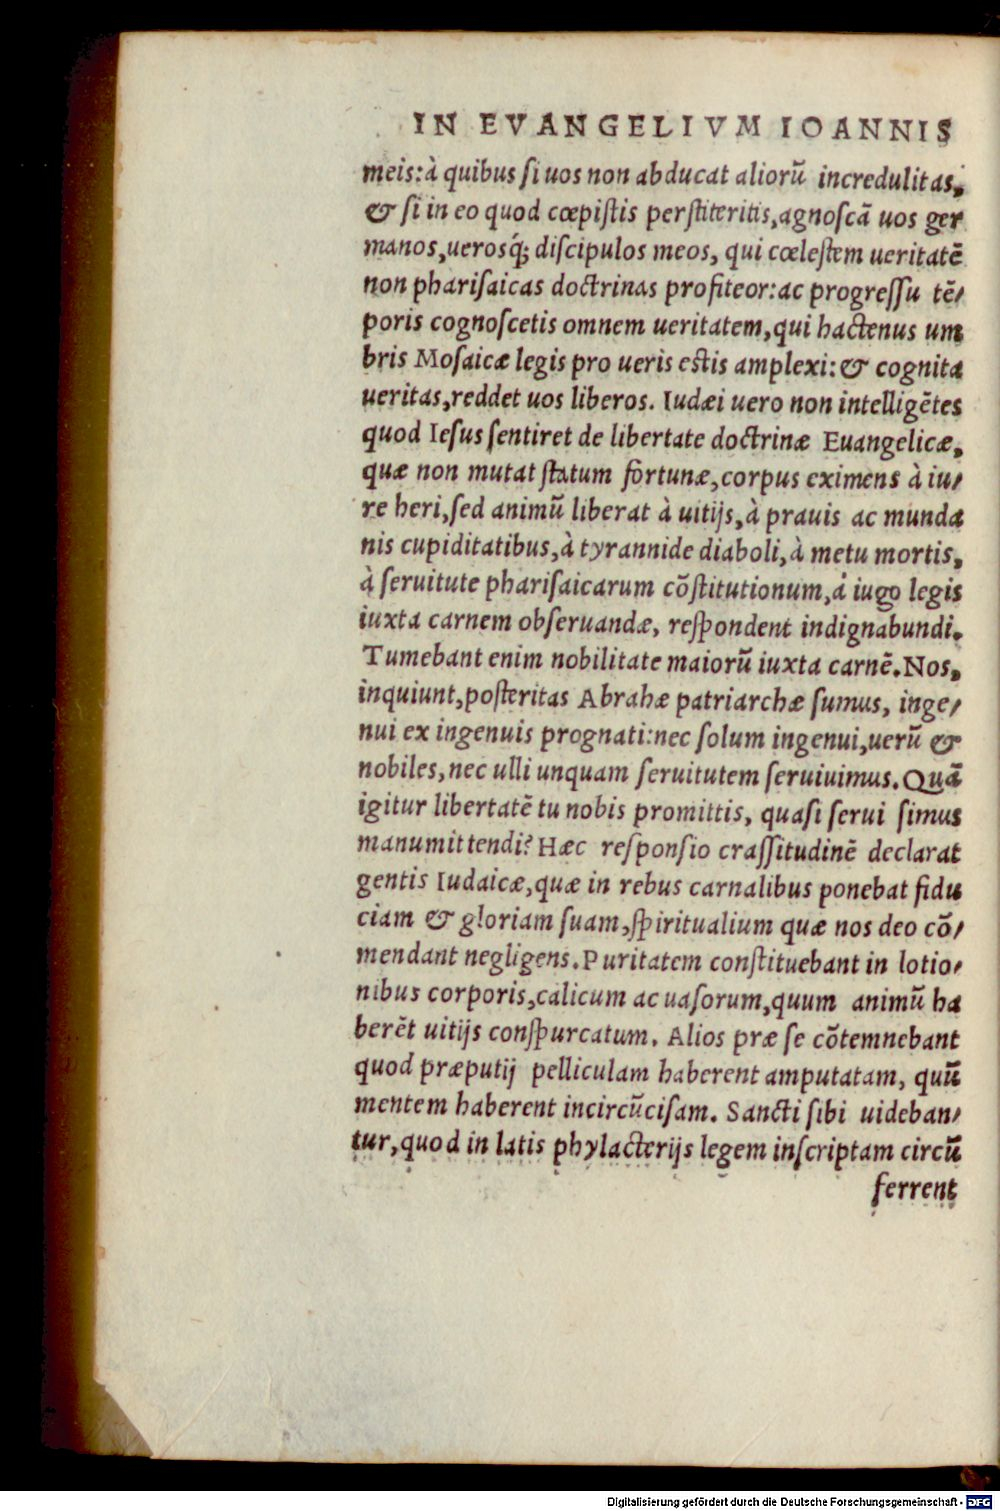 IN EVANGELIVM IOANNIS
meis: à quibus ſi uos non abducat aliorũ incredulitas,
& ſi in eo quod cœpiſtis perſtiteritis, agnoſcã uos ger
manos, ueroſq́; diſcipulos meos, qui cœleſtem ueritatẽ
non phariſaicas doctrinas profiteor: ac progreſſu tẽ/
poris cognoſcetis omnem ueritatem, qui hactenus um
bris Moſaicæ legis pro ueris eſtis amplexi: & cognita
ueritas, reddet uos liberos. Iudæi uero non intelligẽtes
quod Ieſus ſentiret de libertate doctrinæ Euangelicæ,
quæ non mutat ſtatum fortunæ, corpus eximens à iu/
re heri, ſed animũ liberat à uitijs, à prauis ac munda
nis cupiditatibus, à tyrannide diaboli, à metu mortis,
à ſeruitute phariſaicarum cõſtitutionum, à iugo legis
iuxta carnem obſeruandæ, reſpondent indignabundi.
Tumebant enim nobilitate maiorũ iuxta carnẽ. Nos,
inquiunt, poſteritas Abrahæ patriarchæ ſumus, inge/
nui ex ingenuis prognati: nec ſolum ingenui, uerũ &
nobiles, nec ulli unquam ſeruitutem ſeruiuimus. Quã
igitur libertatẽ tu nobis promittis, quaſi ſerui ſimus
manumittendi? Hæc reſponſio craſſitudinẽ declarat
gentis Iudaicæ, quæ in rebus carnalibus ponebat fidu
ciam & gloriam ſuam, ſpiritualium quæ nos deo cõ/
mendant negligens. Puritatem conſtituebant in lotio/
nibus corporis, calicum ac uaſorum, quum animũ ha
berẽt uitijs conſpurcatum. Alios præ ſe cõtemnebant
quod præputij pelliculam haberent amputatam, quũ
mentem haberent incircũciſam. Sancti ſibi uideban/
tur, quod in latis phylacterijs legem inſcriptam circũ
ferrent
Digitalisierung gefördert durch die Deutsche Forschungsgemeinschaft - DFG